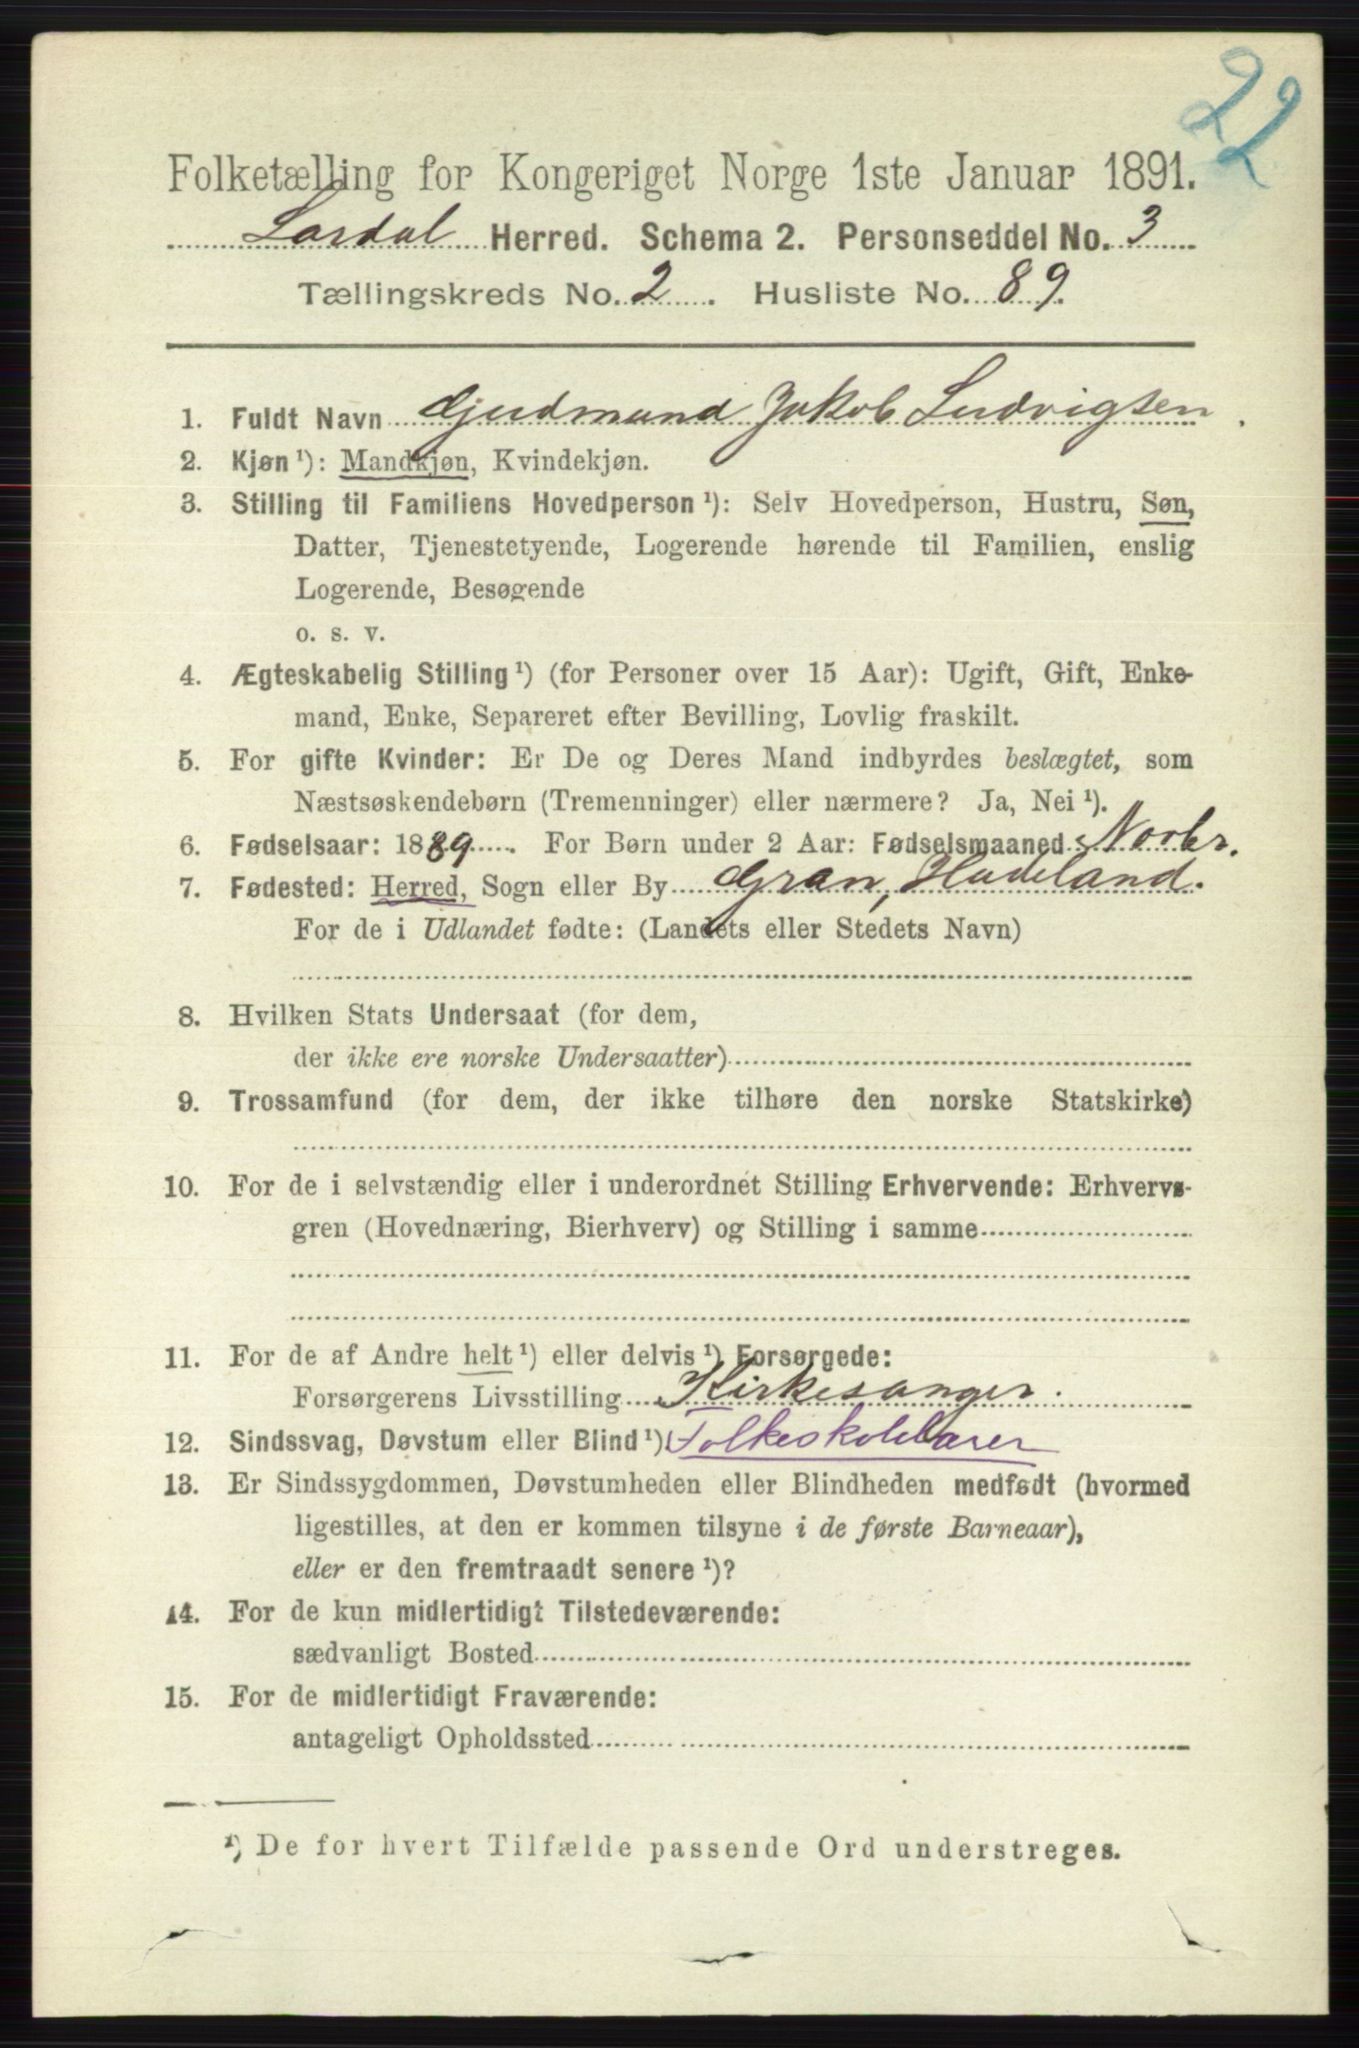 22
Folketælling for Kongeriget Norge 1ste Januar 1891.
Lardal Herred. Schema 2. Personseddel No. 3
Tællingskreds No. 2. Husliste No. 89.
1. Fuldt Navn Gjudmund Jakob Ludvigsen.
2. Kjøn¹): Mandkjøn, Kvindekjøn.
3. Stilling til Familiens Hovedperson¹): Selv Hovedperson, Hustru, Søn,
Datter, Tjenestetyende, Logerende hørende til Familien, enslig
Logerende, Besøgende
o. s. v.
4. Ægteskabelig Stilling¹) (for Personer over 15 Aar): Ugift, Gift, Enke-
mand, Enke, Separeret efter Bevilling, Lovlig fraskilt.
5. For gifte Kvinder: Er De og Deres Mand indbyrdes beslægtet, som
Næstsøskendebørn (Tremenninger) eller nærmere? Ja, Nei¹).
6. Fødselsaar: 1889. For Børn under 2 Aar: Fødselsmaaned Novbr.
7. Fødested: Herred, Sogn eller By Gran, Hadeland.
For de i Udlandet fødte: (Landets eller Stedets Navn)
8. Hvilken Stats Undersaat (for dem,
der ikke ere norske Undersaatter)
9. Trossamfund (for dem, der ikke tilhøre den norske Statskirke)
10. For de i selvstændig eller i underordnet Stilling Erhvervende: Erhvervs-
gren (Hovednæring, Bierhverv) og Stilling i samme
11. For de af Andre helt¹) eller delvis¹) Forsørgede:
Forsørgerens Livsstilling Kirkesanger.
12. Sindssvag, Døvstum eller Blind¹). Folkeskolelærer
13. Er Sindssygdommen, Døvstumheden eller Blindheden medfødt (hvormed
ligestilles, at den er kommen tilsyne i de første Barneaar),
eller er den fremtraadt senere¹)?
14. For de kun midlertidigt Tilstedeværende:
sædvanligt Bosted
15. For de midlertidigt Fraværende:
antageligt Opholdssted
¹) De for hvert Tilfælde passende Ord understreges.